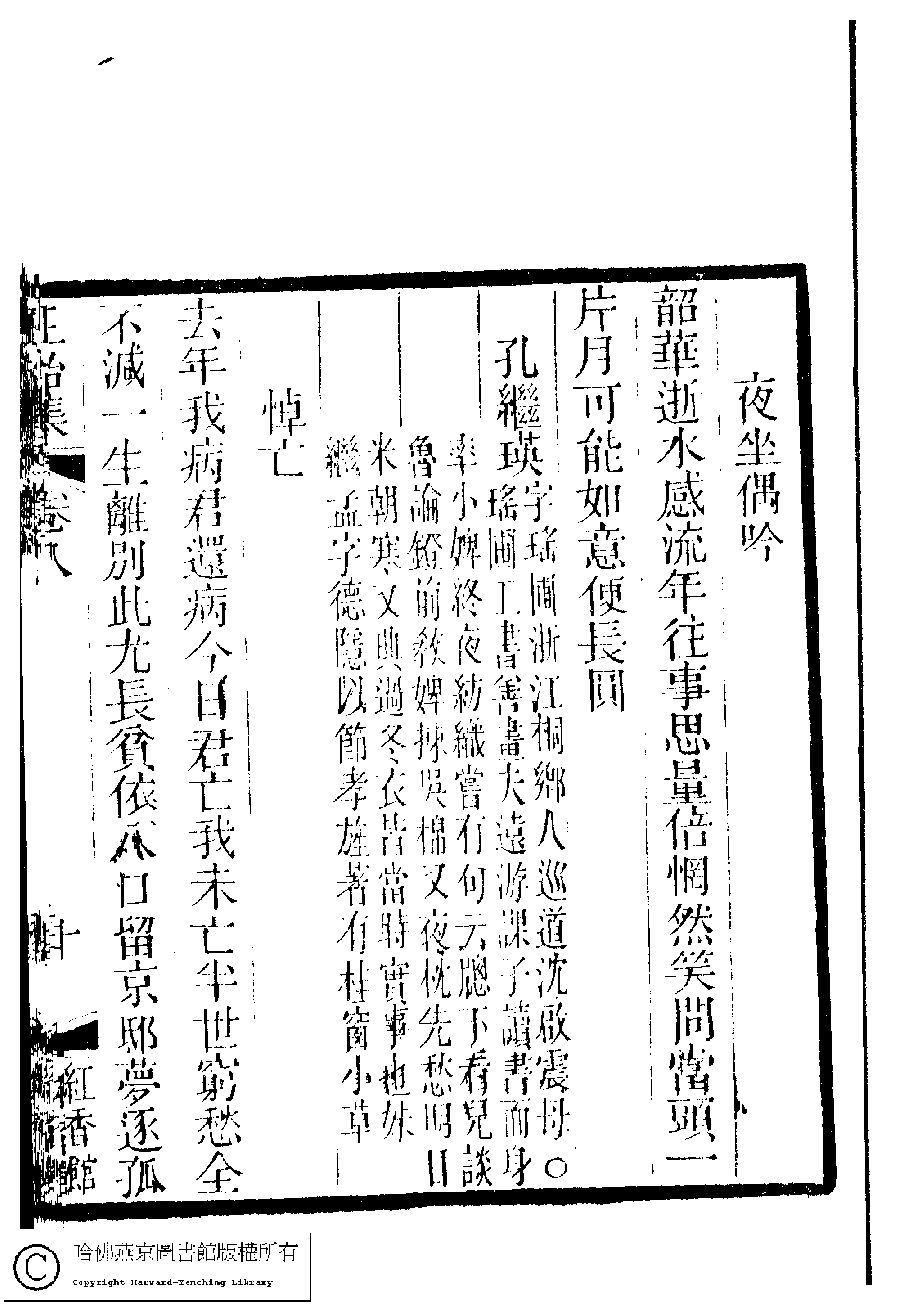 夜坐偶吟
韶華逝水感流年往事思量倍惘然笑問當頭一
片月可能如意便長圓
孔繼瑛字瑤圃浙江桐鄉人巡道沈啟震母〇
瑤圃工書善畫夫遠游課子讀書而身
率小婢終夜紡織嘗有句云牕下看兒談
魯論鐙前教婢揀吳棉又夜枕先愁明日
米朝寒又典過冬衣皆當時實事也妹
繼孟字德隱以節孝旌著有桂窗小草
悼亡
去年我病君還病今日君亡我未亡半世窮愁全
不減一生離別此尤長貧依 口留京邸夢逐孤
正始集 卷八 紅香館
哈佛燕京圖書館版權所有
Copyright Harvard-Yenching Library